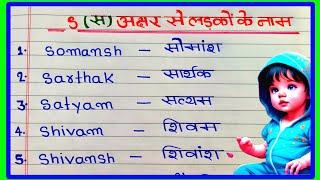 S (स) अक्षर से लड़कों के नाम
1· Somansh – सोमांश
2· Sarthak – सार्थक
3· Satyam – सत्यम
4· Shivam – शिवम
5· Shivansh – शिवांश